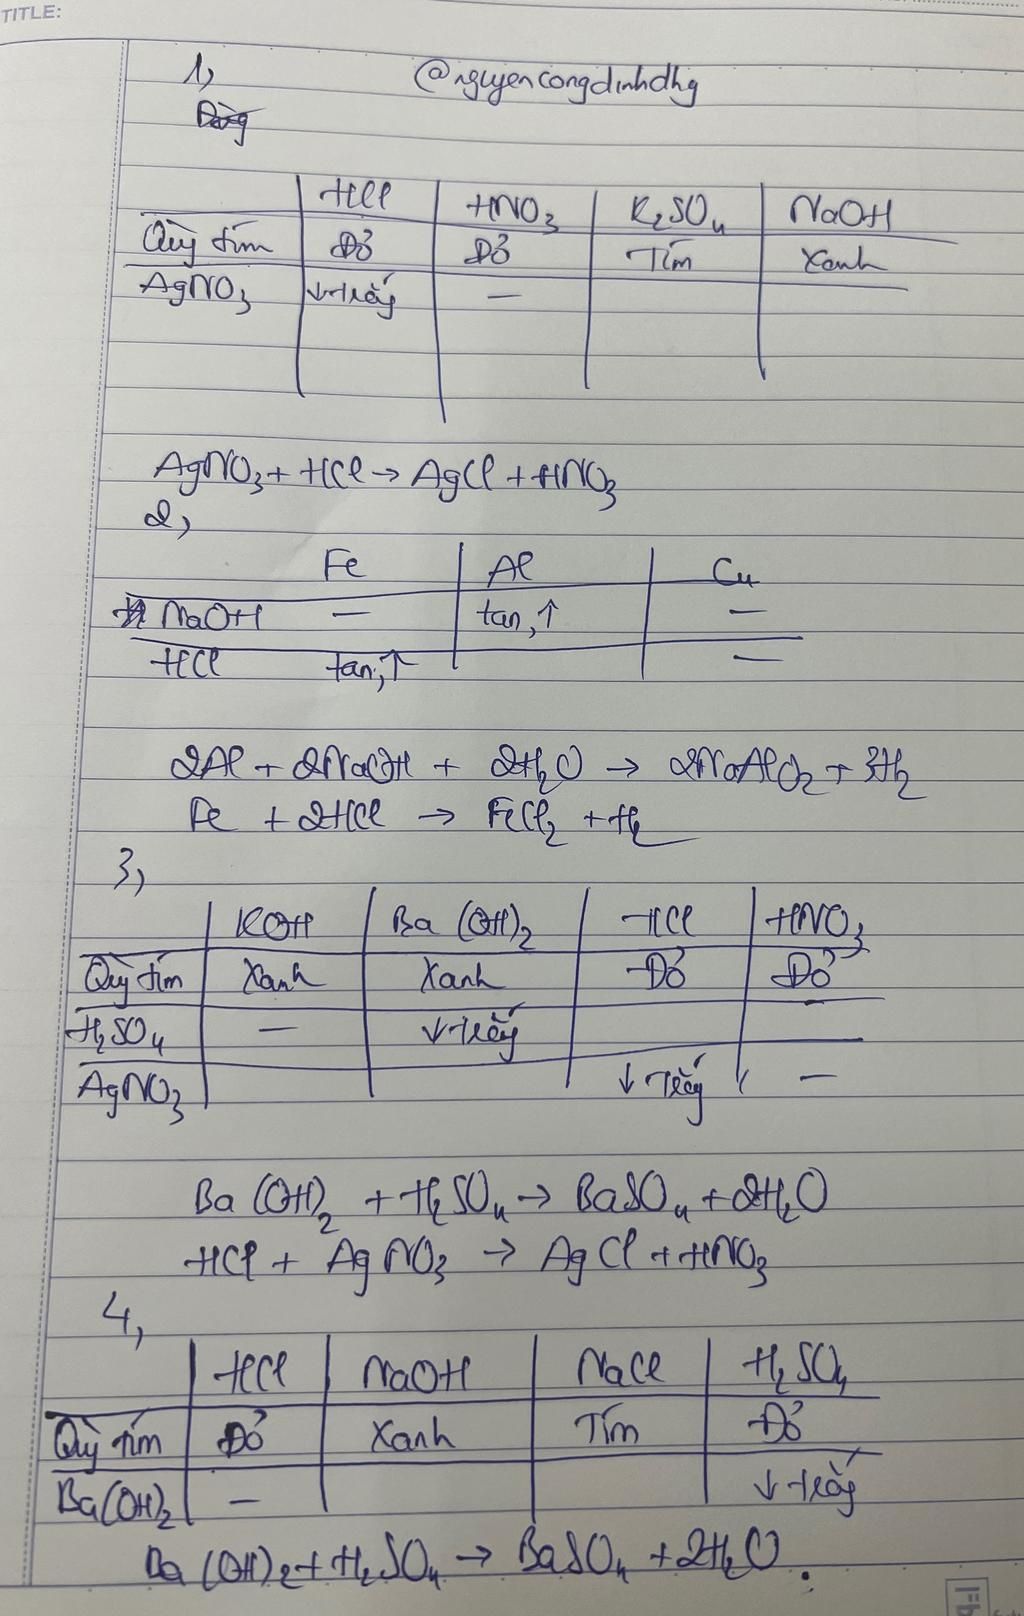 TITLE:
1, @nguyencongdinhdhg
Dùng
HCl HNO3 K2SO4 NaOH
Quỳ tím Đỏ Đỏ Tím Xanh
AgNO3 ↓trắng —
AgNO3 + HCl → AgCl + HNO3
2,
Fe Al Cu
NaOH — tan, ↑ —
HCl tan, ↑ —
2Al + 2NaOH + 2H2O → 2NaAlO2 + 3H2
Fe + 2HCl → FeCl2 + H2
3,
KOH Ba(OH)2 HCl HNO3
Quỳ tím Xanh Xanh Đỏ Đỏ
H2SO4 — ↓trắng
AgNO3 ↓ Trắng —
Ba(OH)2 + H2SO4 → BaSO4 + 2H2O
HCl + AgNO3 → AgCl + HNO3
4,
HCl NaOH NaCl H2SO4
Quỳ tím Đỏ Xanh Tím Đỏ
Ba(OH)2 — ↓ trắng
Ba(OH)2 + H2SO4 → BaSO4 + 2H2O.